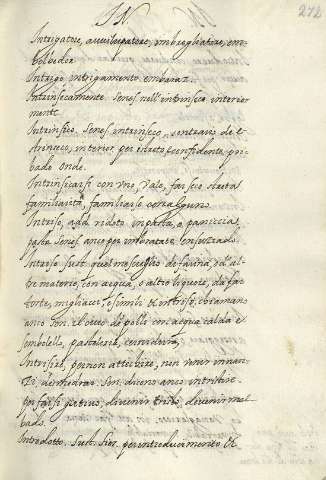 IN.
272
Intrigatore, avviluppatore, imbrogliatore, em-
Intrigo intrigamento embaraz.
Intrinsecamente. Senes. nell'intrinseco interior
mente
Intrinsico. Senes. intrinseco, contrario de l'
estrinseco, interior per stretto e confidente, pri-
Intrinsicarsi con uno, Vale, far seco stretta
familiarità, familiarse con alguno
Intriso, add. ridoto in pasta, o paniccia
pasta Senes. anco per imbrattare, ensuziado
Intriso Sust. quel mescuglio di farina, o d'al-
tre materie, con acqua, o altro liquore, da far
torte, migliacci, e simili & intriso, chiamano
anco Sen. il cibo de polli con acqua calda e
semolello,
Intristire, per non attechire, non venir innan-
zi, Sen. dicono anco intristire
per farsi cattivo, divenir tristo, devenir mal-
vado.
Introdotto. Sust. per introducimento &